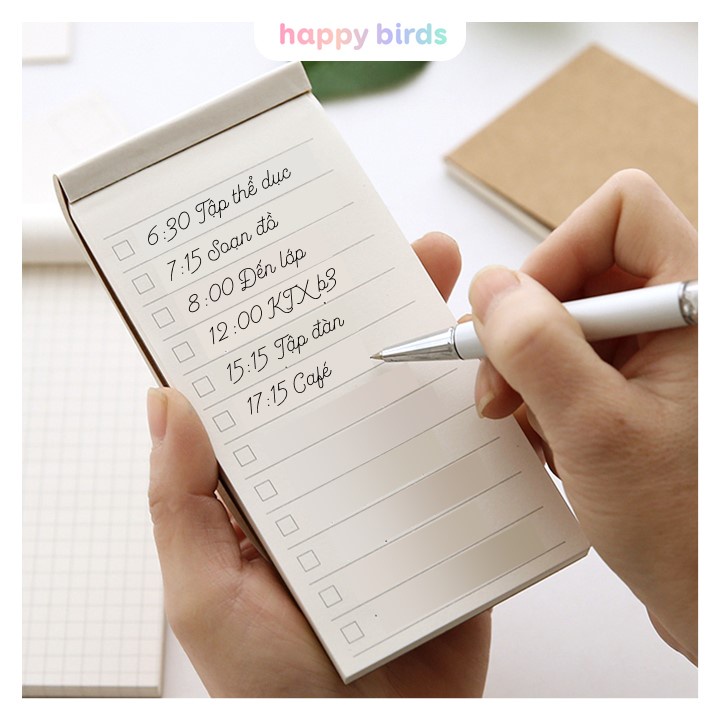 happy birds
6:30 Tập thể dục
7:15 Soạn đồ
8:00 Đến lớp
12:00 KTX b3
15:15 Tập đàn
17:15 Café